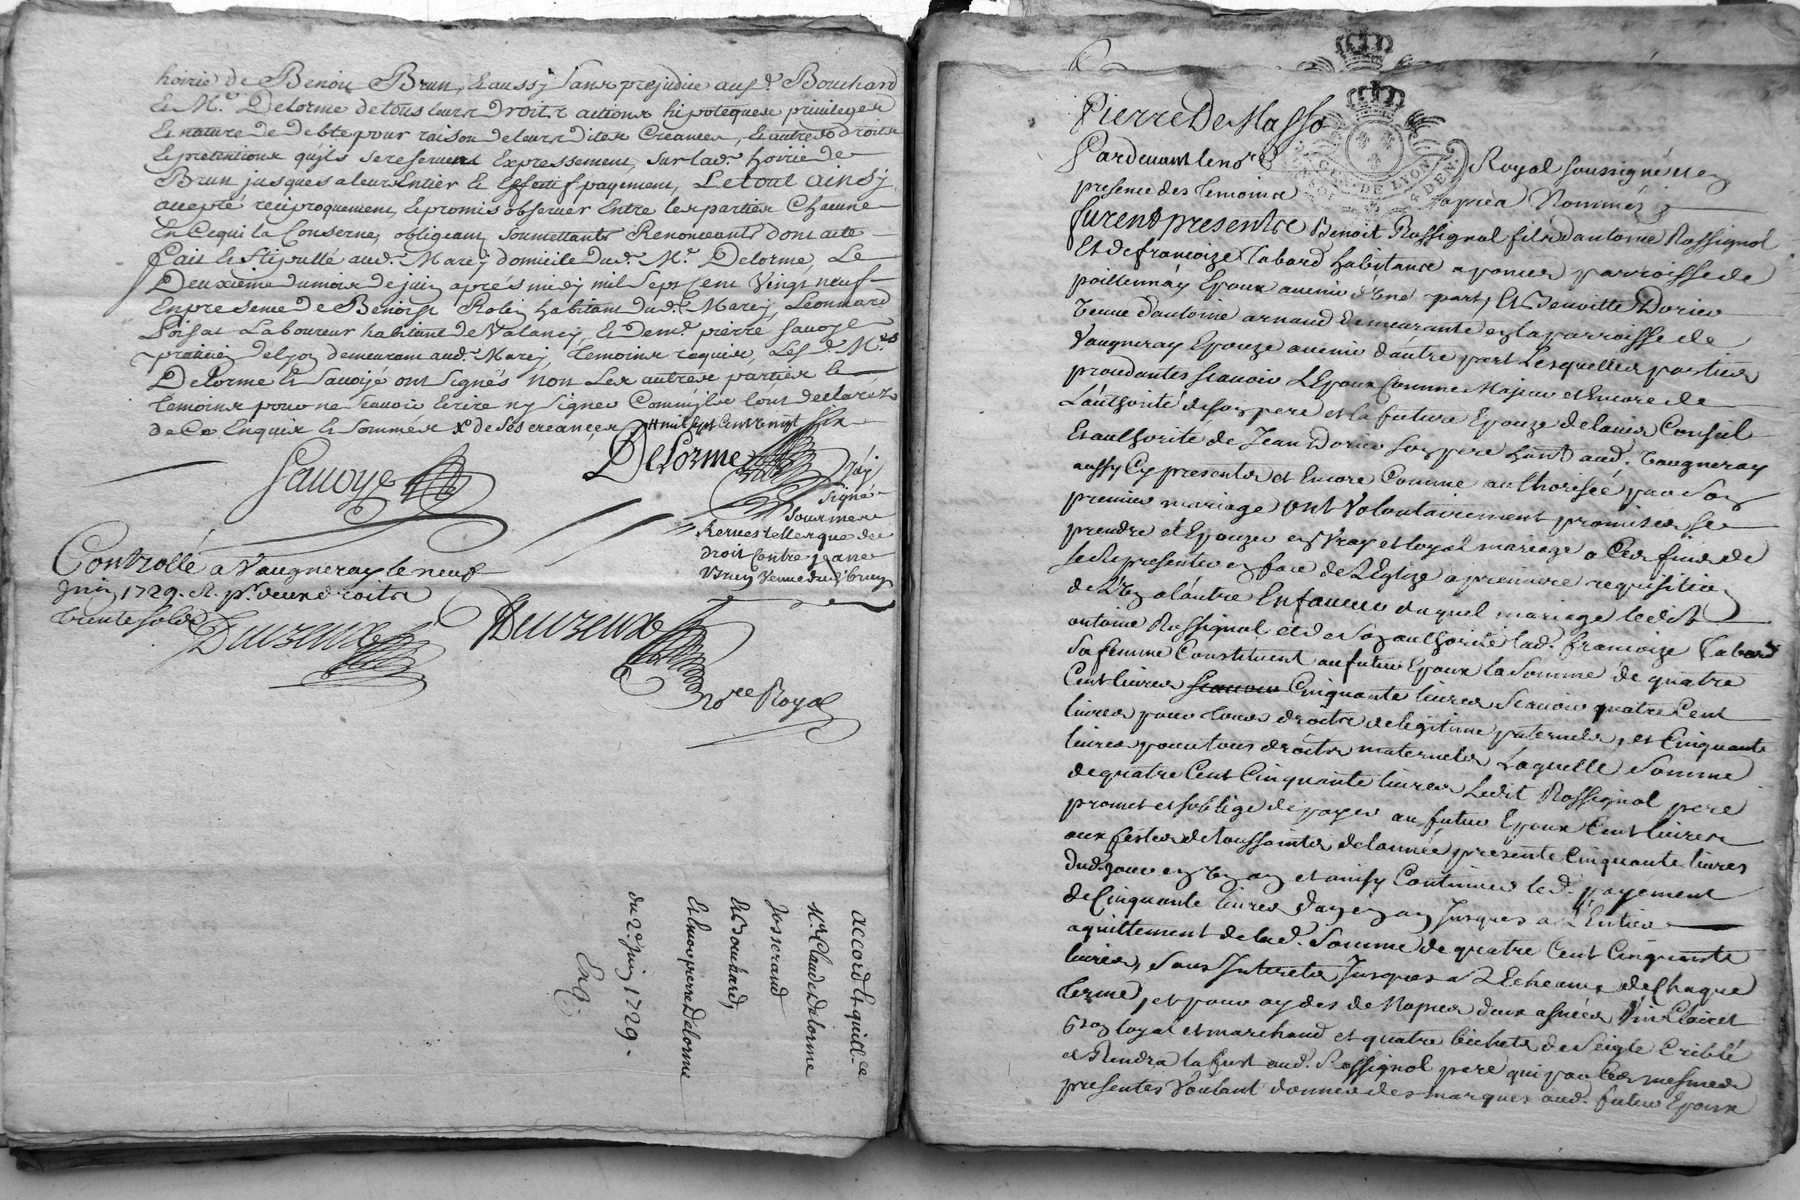 hoirie de Benoit Brun, et aussy sans prejudice aud. Bouchard
& Mr. Delorme de tous leurs droits actions hipoteques privileges
& nature de debte pour raison de leurs dites creances, & autres droits
& pretentions qu'ils se reservent expressement, sur lad. hoirie de
Brun jusques a leur entier & effectif payement, Le tout ainsy
accepté reciproquement, & promis observer entre les parties chacune
en ce qui la conserne, obligeant, soumettants Renonceants dont acte
fait & stipullé aud. Marcy domicile dud. Mr. Delorme, Le
Deuxieme du mois de juin apres midy mil sept cent vingt neuf
En presence de Benoist Robin habitant dud. Marcy, Leonnard
Loisat Laboureur habitant de Valancy, & dem. pierre Sauoye
praticien de Lyon demeurant aud. Marcy, temoins requis, Les d. Mrs
Delorme & Sauoye ont signés non les autres parties &
temoins pour ne scauoir écrire ny signer comm'ils ont declaréz
de ce enquis & sommés x de ses creances # mil sept cent vingt six
Sauoye
Delorme
J'ay
signé
sous mes
Reruestelles que de
droit contre jeanne
Brun veuue dud. brun
Controllé a Vaugneray le neuf
Juin 1729. & pr. deux droits
trente sols
Deuzeux
Deuzeux
Nore Royal
accord & quittce
Mr. Claude Delorme
Josserand
& Bouchard,
Et mre pierre Delorme
du 2e. juin 1729.
Exp.
Pierre De Masso
Pardeuant le nore Royal soussigné et en
presence des temoins apres Nommés
furent presents Benoit Rossignol fils d'antoine Rossignol
Et de francoize Tabard habitants a poncer parroisse de
poillennay Epoux auenir d'une part, Et Benoitte Dorier
Veuue d'antoine arnaud demeurante en la parroisse de
Vaugneray Epouze auenir d'autre part Lesquelles parties
procedantes scauoir L'Epoux Comme Majeur et Encore de
L'authorité de son pere et la future Epouze de l'auis Conseil
Et authorité de Jean Dorier son pere habnt. aud. Vaugneray
aussy Cy present et Encore Comme authorisée par son
premier mariage ont Volontairement promis de se
prendre et Epouzer en Vray et loyal mariage a Ces fins de
se Representer en face de L'Eglize a premiere requisition
de L'un a l'autre En faueur duquel mariage ledit
antoine Rossignol et de son authorité lad. francoize Tabard
sa femme Constituent au futur Epoux la somme de quatre
Cent livres scauoir Cinquante livres scauoir quatre Cent
livres pour tous droits de legitime paternels, et Cinquante
livres pour tous droits maternels Laquelle somme
de quatre Cent Cinquante livres Ledit Rossignol pere
promet et s'oblige de payer au futur Epoux Cent livres
aux festes de toussaints de l'année presente Cinquante livres
dud. jour en un an et ainsy Continuer led. payement
de Cinquante livres d'an en an Jusques a L'Entier
aquittement de lad. somme de quatre Cent Cinquante
livres, sans Interets Jusques a L'Echeance de Chaque
terme, et pour aydes de Nopces deux asnées Vin Clairet
bon loyal et marchand et quatre bichets de seigle Criblé
et Rendra la fust aud. Rossignol pere qui par Ces mesmes
presentes Voulant donner des marques aud. futur Epoux